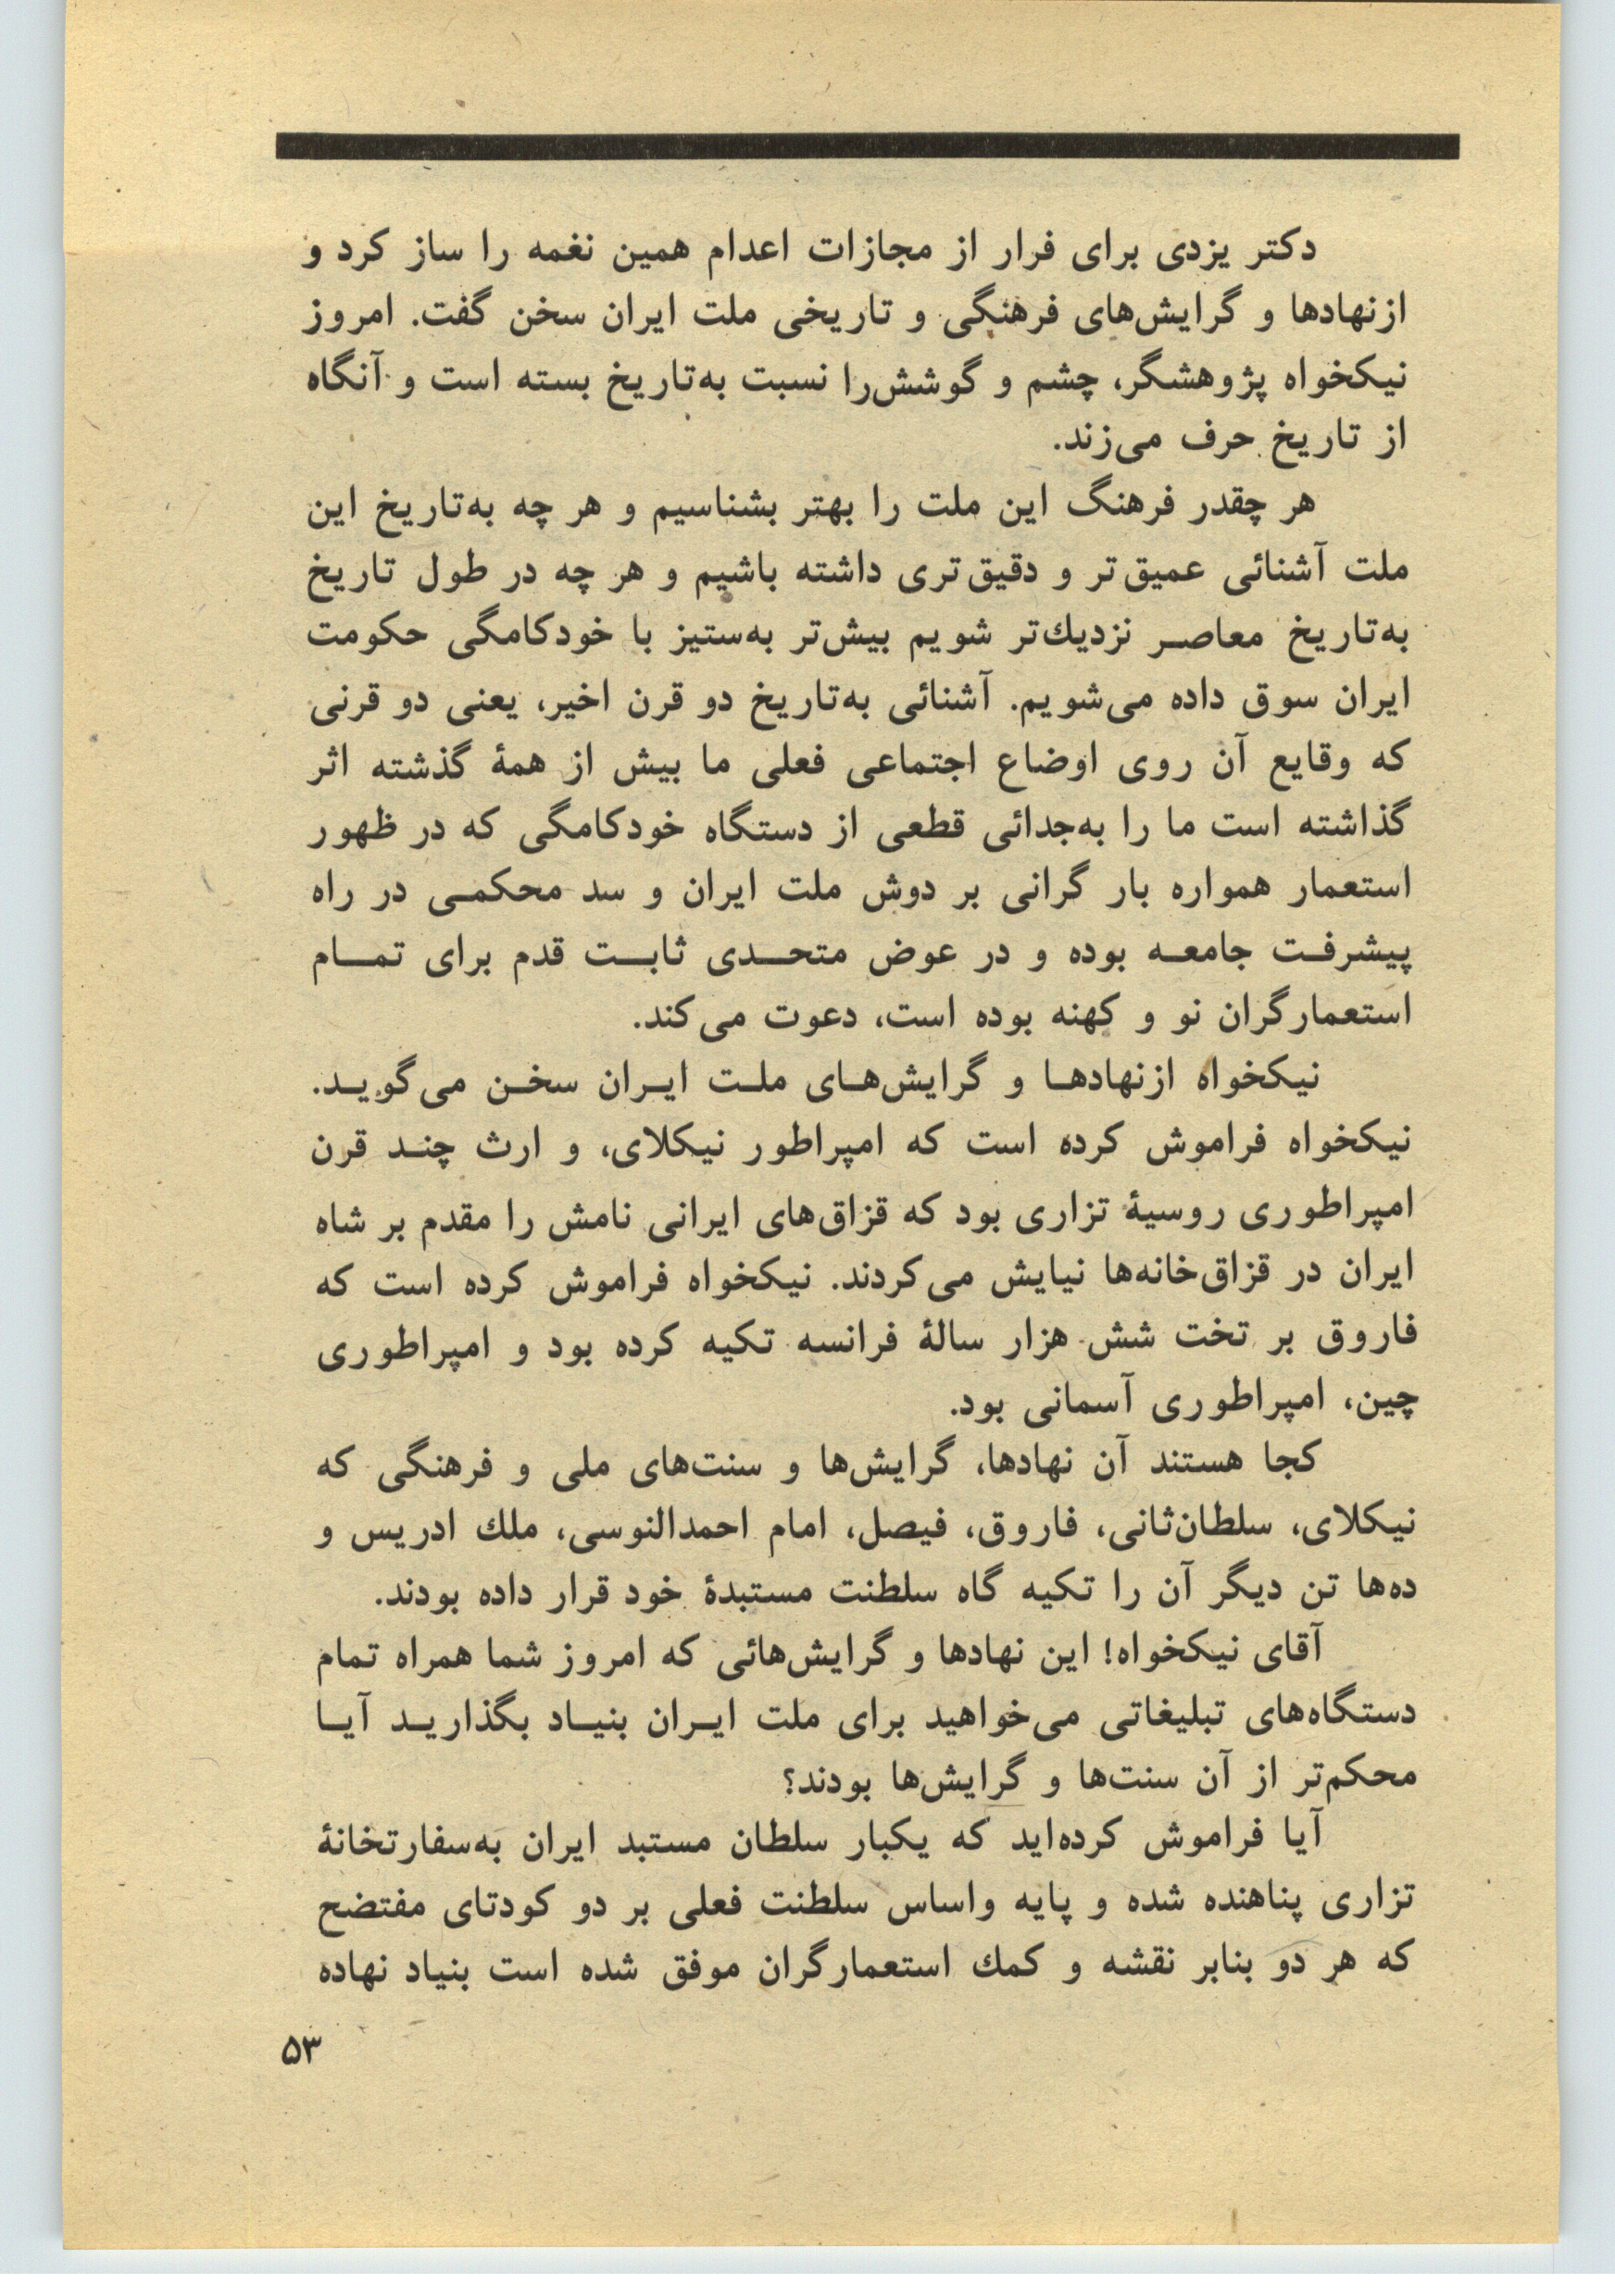 دکتر یزدی برای فرار از مجازات اعدام همین نغمه را ساز کرد و
ازنهادها و گرایش‌های فرهنگی و تاریخی ملت ایران سخن گفت. امروز
نیکخواه پژوهشگر، چشم و گوشش‌را نسبت به‌تاریخ بسته است و آنگاه
از تاریخ حرف می‌زند.
هر چقدر فرهنگ این ملت را بهتر بشناسیم و هر چه به‌تاریخ این
ملت آشنائی عمیق‌تر و دقیق‌تری داشته باشیم و هر چه در طول تاریخ
به‌تاریخ معاصر نزدیك‌تر شویم بیش‌تر به‌ستیز با خودکامگی حکومت
ایران سوق داده می‌شویم. آشنائی به‌تاریخ دو قرن اخیر، یعنی دو قرنی
که وقایع آن روی اوضاع اجتماعی فعلی ما بیش از همهٔ گذشته اثر
گذاشته است ما را به‌جدائی قطعی از دستگاه خودکامگی که در ظهور
استعمار همواره بار گرانی بر دوش ملت ایران و سد محکمی در راه
پیشرفت جامعه بوده و در عوض متحدی ثابت قدم برای تمام
استعمارگران نو و کهنه بوده است، دعوت می‌کند.
نیکخواه ازنهادها و گرایش‌های ملت ایران سخن می‌گوید.
نیکخواه فراموش کرده است که امپراطور نیکلای، و ارث چند قرن
امپراطوری روسیهٔ تزاری بود که قزاق‌های ایرانی نامش را مقدم بر شاه
ایران در قزاق‌خانه‌ها نیایش می‌کردند. نیکخواه فراموش کرده است که
فاروق بر تخت شش هزار سالهٔ فرانسه تکیه کرده بود و امپراطوری
چین، امپراطوری آسمانی بود.
کجا هستند آن نهادها، گرایش‌ها و سنت‌های ملی و فرهنگی که
نیکلای، سلطان‌ثانی، فاروق، فیصل، امام احمدالنوسی، ملك ادریس و
ده‌ها تن دیگر آن را تکیه گاه سلطنت مستبدهٔ خود قرار داده بودند.
آقای نیکخواه! این نهادها و گرایش‌هائی که امروز شما همراه تمام
دستگاه‌های تبلیغاتی می‌خواهید برای ملت ایران بنیاد بگذارید آیا
محکم‌تر از آن سنت‌ها و گرایش‌ها بودند؟
آیا فراموش کرده‌اید که یکبار سلطان مستبد ایران به‌سفارتخانهٔ
تزاری پناهنده شده و پایه واساس سلطنت فعلی بر دو کودتای مفتضح
که هر دو بنابر نقشه و کمك استعمارگران موفق شده است بنیاد نهاده
۵۳